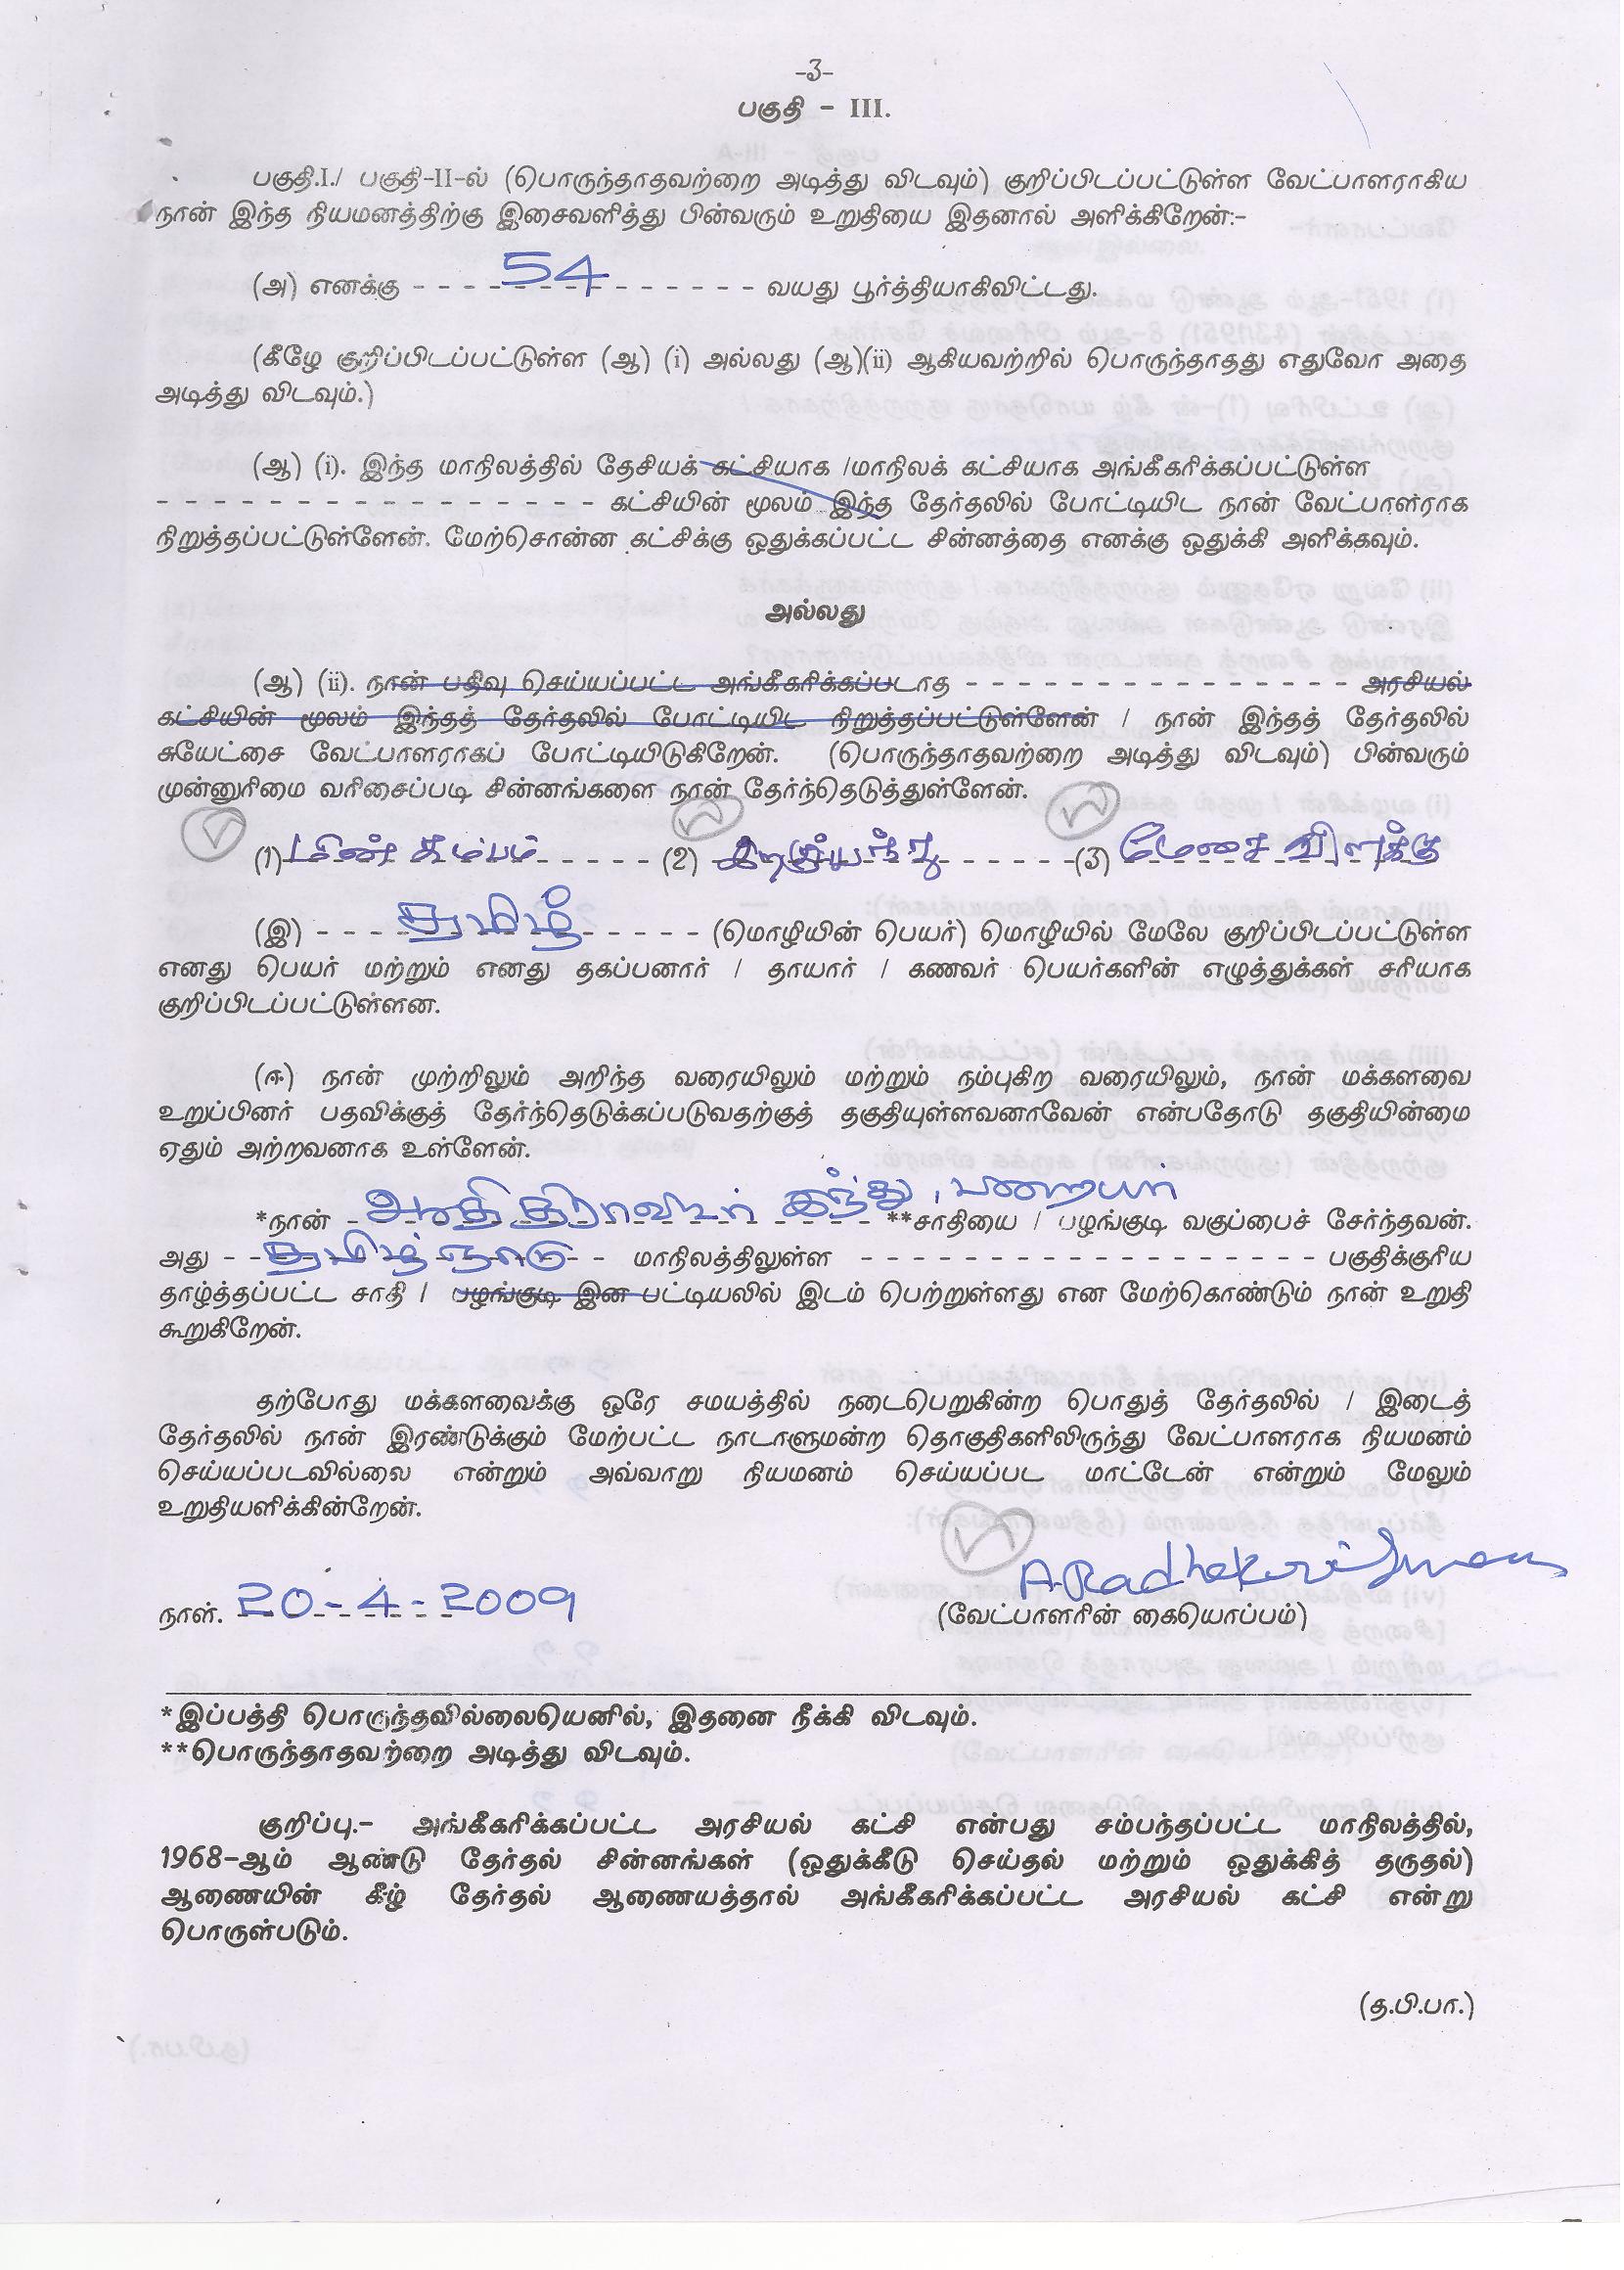 -3-
பகுதி - III.
பகுதி.I./ பகுதி-II-ல் (பொருந்தாதவற்றை அடித்து விடவும்) குறிப்பிடப்பட்டுள்ள வேட்பாளராகிய
நான் இந்த நியமனத்திற்கு இசைவளித்து பின்வரும் உறுதியை இதனால் அளிக்கிறேன்:-
(அ) எனக்கு - - - - 54 - - - - வயது பூர்த்தியாகிவிட்டது.
(கீழே குறிப்பிடப்பட்டுள்ள (ஆ) (i) அல்லது (ஆ)(ii) ஆகியவற்றில் பொருந்தாதது எதுவோ அதை
அடித்து விடவும்.)
(ஆ) (i). இந்த மாநிலத்தில் தேசியக் கட்சியாக /மாநிலக் கட்சியாக அங்கீகரிக்கப்பட்டுள்ள
- - - - - - - - - - - - - - - - - கட்சியின் மூலம் இந்த தேர்தலில் போட்டியிட நான் வேட்பாளராக
நிறுத்தப்பட்டுள்ளேன். மேற்சொன்ன கட்சிக்கு ஒதுக்கப்பட்ட சின்னத்தை எனக்கு ஒதுக்கி அளிக்கவும்.
அல்லது
(ஆ) (ii). நான் பதிவு செய்யப்பட்ட அங்கீகரிக்கப்படாத - - - - - - - - - - - - - - - அரசியல்
கட்சியின் மூலம் இந்தத் தேர்தலில் போட்டியிட நிறுத்தப்பட்டுள்ளேன் / நான் இந்தத் தேர்தலில்
சுயேட்சை வேட்பாளராகப் போட்டியிடுகிறேன். (பொருந்தாதவற்றை அடித்து விடவும்) பின்வரும்
முன்னுரிமை வரிசைப்படி சின்னங்களை நான் தேர்ந்தெடுத்துள்ளேன்.
(1) மின் கம்பம் - - - - - (2) - - - - - (3) மேசை விளக்கு
(இ) - - - - தமிழ் - - - - - (மொழியின் பெயர்) மொழியில் மேலே குறிப்பிடப்பட்டுள்ள
எனது பெயர் மற்றும் எனது தகப்பனார் / தாயார் / கணவர் பெயர்களின் எழுத்துக்கள் சரியாக
குறிப்பிடப்பட்டுள்ளன.
(ஈ) நான் முற்றிலும் அறிந்த வரையிலும் மற்றும் நம்புகிற வரையிலும், நான் மக்களவை
உறுப்பினர் பதவிக்குத் தேர்ந்தெடுக்கப்படுவதற்குத் தகுதியுள்ளவனாவேன் என்பதோடு தகுதியின்மை
ஏதும் அற்றவனாக உள்ளேன்.
*நான் - ஆதி திராவிடர் இந்து, பறையர் **சாதியை / பழங்குடி வகுப்பைச் சேர்ந்தவன்.
அது - - தமிழ் நாடு - - மாநிலத்திலுள்ள - - - - - - - - - - - - - - - - - - பகுதிக்குரிய
தாழ்த்தப்பட்ட சாதி / பழங்குடி இன பட்டியலில் இடம் பெற்றுள்ளது என மேற்கொண்டும் நான் உறுதி
கூறுகிறேன்.
தற்போது மக்களவைக்கு ஒரே சமயத்தில் நடைபெறுகின்ற பொதுத் தேர்தலில் / இடைத்
தேர்தலில் நான் இரண்டுக்கும் மேற்பட்ட நாடாளுமன்ற தொகுதிகளிலிருந்து வேட்பாளராக நியமனம்
செய்யப்படவில்லை என்றும் அவ்வாறு நியமனம் செய்யப்பட மாட்டேன் என்றும் மேலும்
உறுதியளிக்கின்றேன்.
A.Radhakrishnan
நாள். 20-4-2009 (வேட்பாளரின் கையொப்பம்)
*இப்பத்தி பொருந்தவில்லையெனில், இதனை நீக்கி விடவும்.
**பொருந்தாதவற்றை அடித்து விடவும்.
குறிப்பு.- அங்கீகரிக்கப்பட்ட அரசியல் கட்சி என்பது சம்பந்தப்பட்ட மாநிலத்தில்,
1968-ஆம் ஆண்டு தேர்தல் சின்னங்கள் (ஒதுக்கீடு செய்தல் மற்றும் ஒதுக்கித் தருதல்)
ஆணையின் கீழ் தேர்தல் ஆணையத்தால் அங்கீகரிக்கப்பட்ட அரசியல் கட்சி என்று
பொருள்படும்.
(த.பி.பா.)